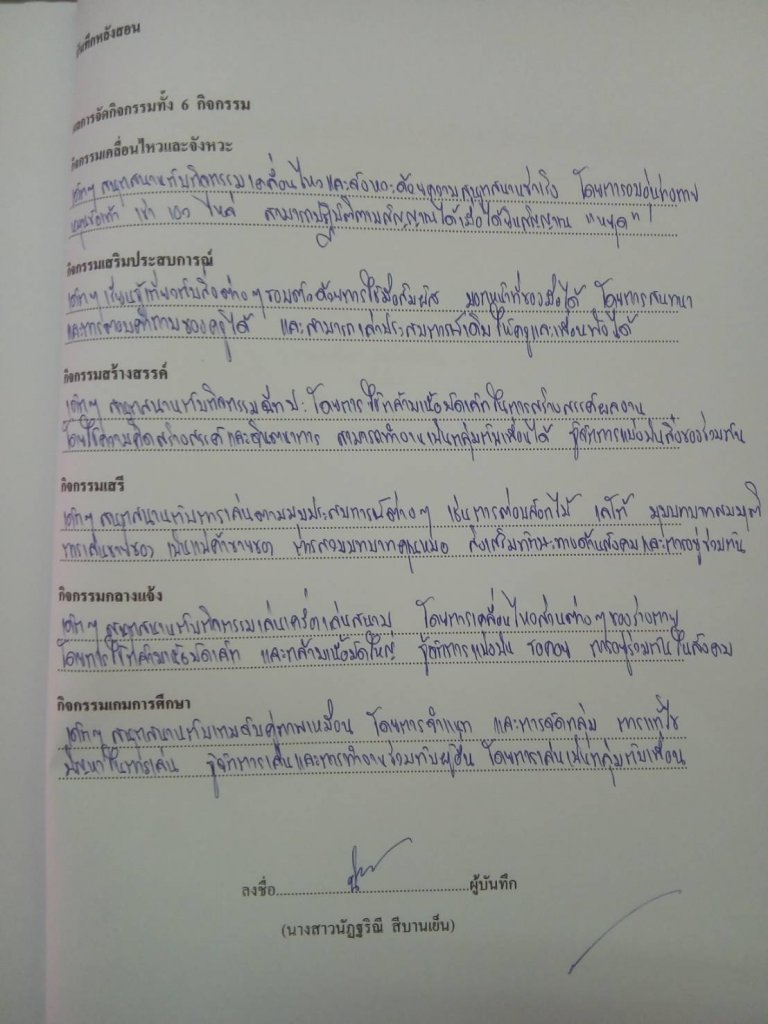 บันทึกหลังสอน
ผลการจัดกิจกรรมทั้ง 6 กิจกรรม
กิจกรรมเคลื่อนไหวและจังหวะ
เด็กๆ สนุกสนานกับกิจกรรมเคลื่อนไหวและจังหวะด้วยความสนุกสนานร่าเริง โดยการอบอุ่นร่างกาย
หมุนข้อเท้า เข่า เอว ไหล่ สามารถปฏิบัติตามสัญญาณได้เมื่อได้ยินสัญญาณ "หยุด"
กิจกรรมเสริมประสบการณ์
เด็กๆ เรียนรู้เกี่ยวกับสิ่งต่างๆรอบตัวด้วยการใช้มือสัมผัส บอกหน้าที่ของมือได้ โดยการสนทนา
และการตอบคำถามของครูได้ และสามารถเล่าประสบการณ์เดิมให้ครูและเพื่อนฟังได้
กิจกรรมสร้างสรรค์
เด็กๆ สนุกสนานกับกิจกรรมฉีกปะ โดยการใช้กล้ามเนื้อมัดเล็กในการสร้างสรรค์ผลงาน
โดยใช้ความคิดสร้างสรรค์และจินตนาการ สามารถทำงานเป็นกลุ่มกับเพื่อนได้ รู้จักการแบ่งปันสิ่งของร่วมกัน
กิจกรรมเสรี
เด็กๆ สนุกสนานกับการเล่นตามมุมประสบการณ์ต่างๆ เช่นการต่อบล็อกไม้ เลโก้ มุมบทบาทสมมุติ
การเล่นขายของ เป็นแม่ค้าขายของ การสวมบทบาทคุณหมอ ส่งเสริมทักษะทางด้านสังคมและการอยู่ร่วมกัน
กิจกรรมกลางแจ้ง
เด็กๆ สนุกสนานกับกิจกรรมเล่นเครื่องเล่นสนาม โดยการเคลื่อนไหวส่วนต่างๆของร่างกาย
โดยการใช้กล้ามเนื้อมัดเล็ก และกล้ามเนื้อมัดใหญ่ รู้จักการแบ่งปัน รอคอย การอยู่ร่วมกันในสังคม
กิจกรรมเกมการศึกษา
เด็กๆ สนุกสนานกับเกมจับคู่ภาพเหมือน โดยการจำแนก และการจัดกลุ่ม การแก้ไข
ปัญหาในการเล่น รู้จักการเล่นและการทำงานร่วมกับผู้อื่น โดยการเล่นเป็นกลุ่มกับเพื่อน
ลงชื่อ....................ผู้บันทึก
(นางสาวนัฏฐริณี สีบานเย็น)